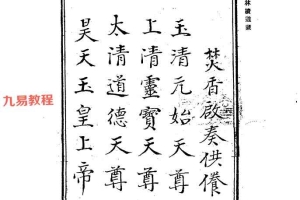 焚香啟奏供養
玉清元始天尊
上清靈寶天尊
太清道德天尊
昊天玉皇上帝
九易教程